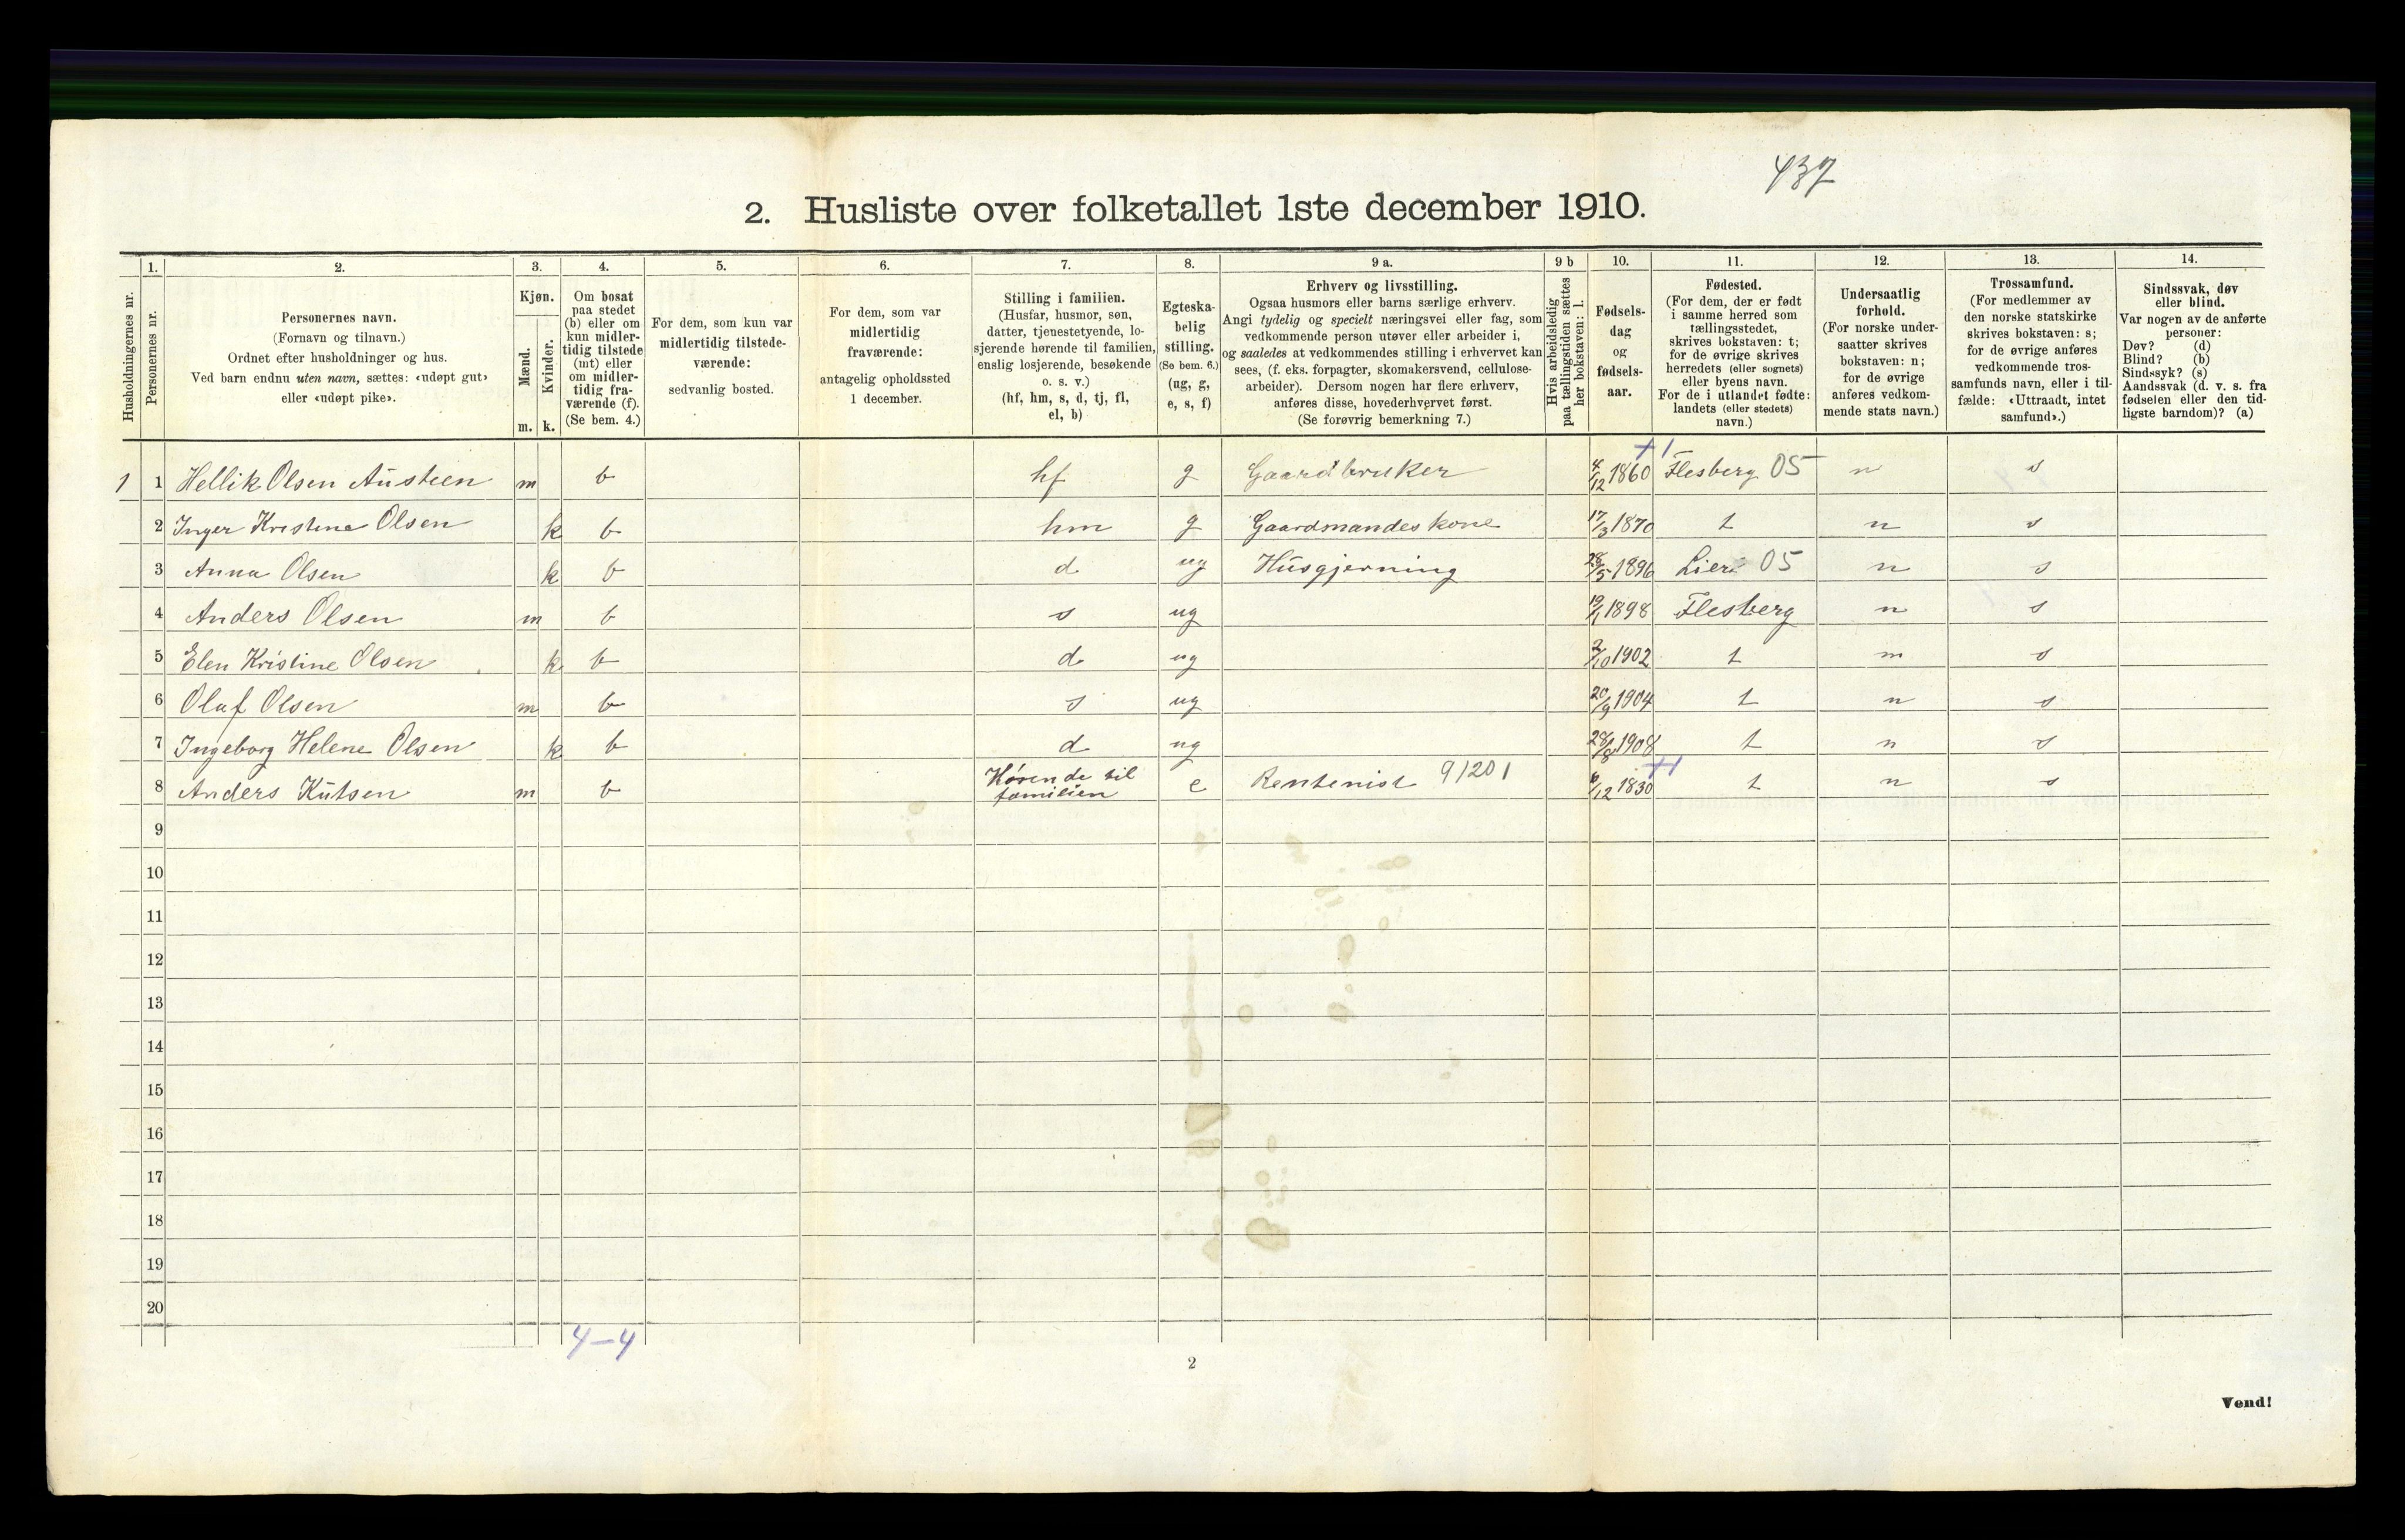 437
2. Husliste over folketallet 1ste december 1910.
Husholdningernes nr.
1.
Personernes nr.
2.
Personernes navn.
(Fornavn og tilnavn.)
Ordnet efter husholdninger og hus.
Ved barn endnu uten navn, sættes: «udøpt gut»
eller «udøpt pike».
3.
Kjøn.
Mænd.
Kvinder.
m. k.
4.
Om bosat
paa stedet
(b) eller om
kun midler-
tidig tilstede
(mt) eller
om midler-
tidig fra-
værende (f).
(Se bem. 4.)
5.
For dem, som kun var
midlertidig tilstede-
værende:
sedvanlig bosted.
6.
For dem, som var
midlertidig
fraværende:
antagelig opholdssted
1 december.
7.
Stilling i familien.
(Husfar, husmor, søn,
datter, tjenestetyende, lo-
sjerende hørende til familien,
enslig losjerende, besøkende
o. s. v.)
(hf, hm, s, d, tj, fl,
el, b)
8.
Egteska-
belig
stilling.
(Se bem. 6.)
(ug, g,
e, s, f)
9 a.
Erhverv og livsstilling.
Ogsaa husmors eller barns særlige erhverv.
Angi tydelig og specielt næringsvei eller fag, som
vedkommende person utøver eller arbeider i,
og saaledes at vedkommendes stilling i erhvervet kan
sees, (f. eks. forpagter, skomakersvend, cellulose-
arbeider). Dersom nogen har flere erhverv,
anføres disse, hovederhvervet først.
(Se forøvrig bemerkning 7.)
9 b
Hvis arbeidsledig
paa tællingstiden sættes
her bokstaven: l.
10.
Fødsels-
dag
og
fødsels-
aar.
11.
Fødested.
(For dem, der er født
i samme herred som
tællingsstedet,
skrives bokstaven: t;
for de øvrige skrives
herredets (eller sognets)
eller byens navn.
For de i utlandet fødte:
landets (eller stedets)
navn.)
12.
Undersaatlig
forhold.
(For norske under-
saatter skrives
bokstaven: n;
for de øvrige
anføres vedkom-
mende stats navn.)
13.
Trossamfund.
(For medlemmer av
den norske statskirke
skrives bokstaven: s;
for de øvrige anføres
vedkommende tros-
samfunds navn, eller i til-
fælde: «Uttraadt, intet
samfund».)
14.
Sindssvak, døv
eller blind.
Var nogen av de anførte
personer:
Døv? (d)
Blind? (b)
Sindssyk? (s)
Aandssvak (d. v. s. fra
fødselen eller den tid-
ligste barndom)? (a)
+1
1 1 Hellik Olsen Austeen m b hf g Gaardbruker 4/12 1860 Flesberg 05 n s
2 Inger Kristina Olsen k b hm g Gaardmandeskone 17/3 1870 t n s
3 Anna Olsen k b d ug Husgjerning 28/5 1896 Lier 05 n s
4 Anders Olsen m b s ug 19/1 1898 Flesberg n s
5 Elen Kristine Olsen k b d ug 2/10 1902 t n s
6 Olaf Olsen m b s ug 20/9 1904 t n s
7 Ingeborg Helene Olsen k b d ug 28/8 1908 t n s
+1
8 Anders Kutsen m b Hørende til familien e Rentenist 91201 6/12 1830 t n s
9
10
11
12
13
14
15
16
17
18
19
20
4-4
2
Vend!